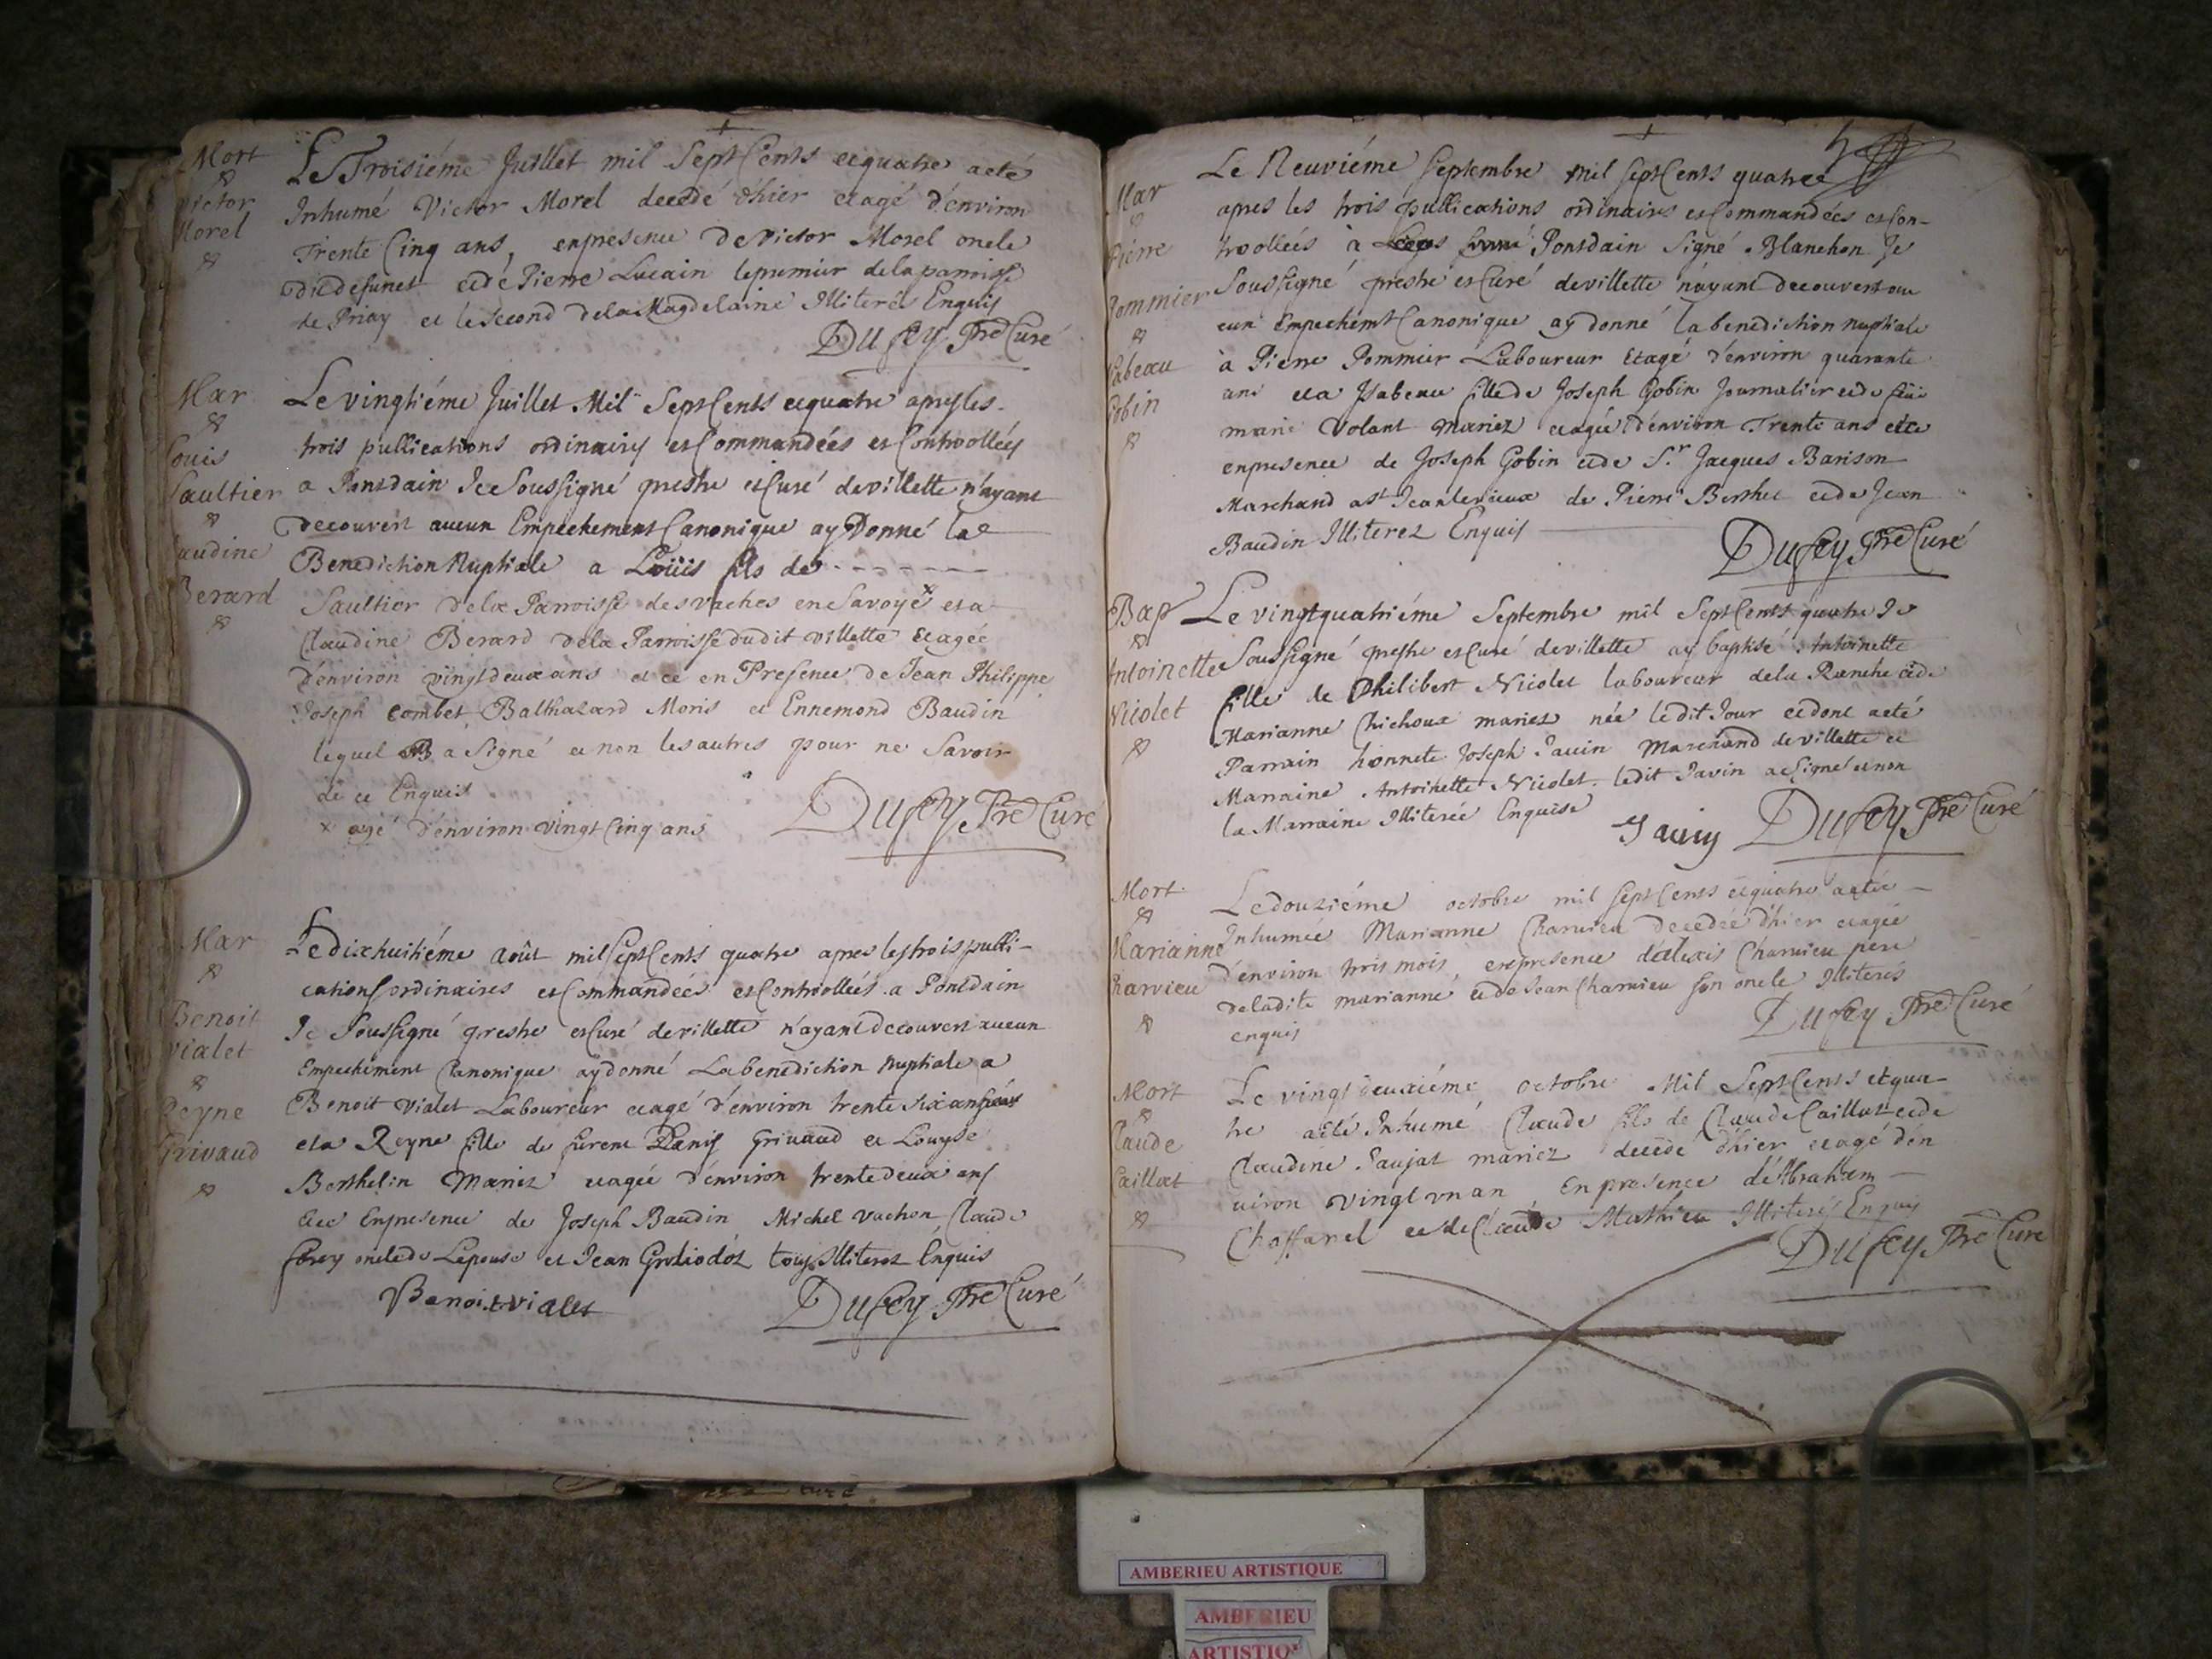 Mort
Victor
Morel
Le Troisiéme Juillet mil Sept Cents et quatre a eté
Inhumé Victor Morel decedé d'hier et agé d'environ
Trente Cinq ans, en presence de Victor Morel oncle
du defunct et de Pierre Lucain le premier de la paroisse
de Priay et le Second de la Magdelaine Illiterés Enquis
Dufey Pre Curé
Mar
Louis
Saultier
Claudine
Berard
Le vingtiéme Juillet Mil Sept Cents et quatre apres les
trois publications ordinaires et Commandées et Controollées
a Pontdain Je Soussigné prestre et Curé de villette n'ayant
decouvert aucun Empechement Canonique ay Donné la
Benediction Nuptiale a Loüis fils de - - - - - -
Saultier de la Parroisse des vaches en Savoye x et a
Claudine Berard de la Parroisse dudit villette et agée
d'environ vingt deux ans et ce en Presence de Jean Philippe
Joseph Combet Balthazard Moris et Ennemond Baudin
lequel a Signé et non les autres pour ne Savoir
de ce Enquis
x agé d'environ vingt Cinq ans
Dufey Pre Curé
Mar
Benoit
vialet
Reyne
Grivaud
Le dixhuitiéme Août mil Sept Cents quatre apres les trois publi-
cations ordinaires et Commandées et Controollées a Pontdain
Je Soussigné prestre et Curé de villette n'ayant decouvert aucun
Empechement Canonique ay donné La benediction Nuptiale a
Benoit vialet Laboureur et agé d'environ trente six ans
et a Reyne fille de furent Denis Grivaud et Louyse
Berthelin Mariez et agée d'environ trente deux ans
Et ce En presence de Joseph Baudin Michel vachon Claude
ferey oncle de Lepouse et Jean Groliodoz tous Illiterez Enquis
Benoit vialet
Dufey Pre Curé
Mar
Pierre
Pommier
Isabeau
Gobin
Le Neuviéme Septembre mil Sept Cents quatre
apres les trois publications ordinaires et Commandées et Con-
troollées à Pontdain Signé Blanchon Je
Soussigné prestre et Curé de villette n'ayant decouvert au
cun Empechemt Canonique ay donné la benediction nuptiale
à Pierre Pommier Laboureur et agé d'environ quarante
ans et a Isabeau fille de Joseph Gobin Journalier et de feüe
marie Volant Mariez et agée d'environ Trente ans et ce
en presence de Joseph Gobin et de S.r Jacques Barison
Marchand a St Jean le vieux de Pierre Berthet et de Jean
Baudin Illiterez Enquis
Dufey Pre Curé
Bap
Antoinette
Nicolet
Le vingt quatriéme Septembre mil Sept Cents quatre Je
Soussigné prestre et Curé de villette ay baptisé Antoinette
fille de Philibert Nicolet laboureur de la Ranche et de
Marianne Chichoux mariez née le dit Jour et dont a eté
Parrain honnete Joseph Javin Marchand de villette et
Marraine Antoinette Nicolet. ledit Javin a Signé et non
la Marraine Illiterée Enquise
Javin
Dufey Pre Curé
Mort
Marianne
Charvieu
Le douziéme octobre mil Sept Cents et quatre a eté
Inhumée Marianne Charvieu Decedée d'hier et agée
d'environ trois mois, en presence d'alexis Charvieu pere
de ladite marianne et de Jean Charvieu son oncle Illiterés
enquis
Dufey Pre Curé
Mort
Claude
Caillat
Le vingt deuxiéme octobre Mil Sept Cents et qua-
tre a eté Inhumé Claude fils de Claude Caillat et de
Claudine Paujat mariez decedé d'hier et agé d'en
viron vingt vn an, En presence de Abraham
Choffanel et de Claude Mathieu Illiterés Enquis
Dufey Pre Curé
AMBERIEU ARTISTIQUE
AMBERIEU